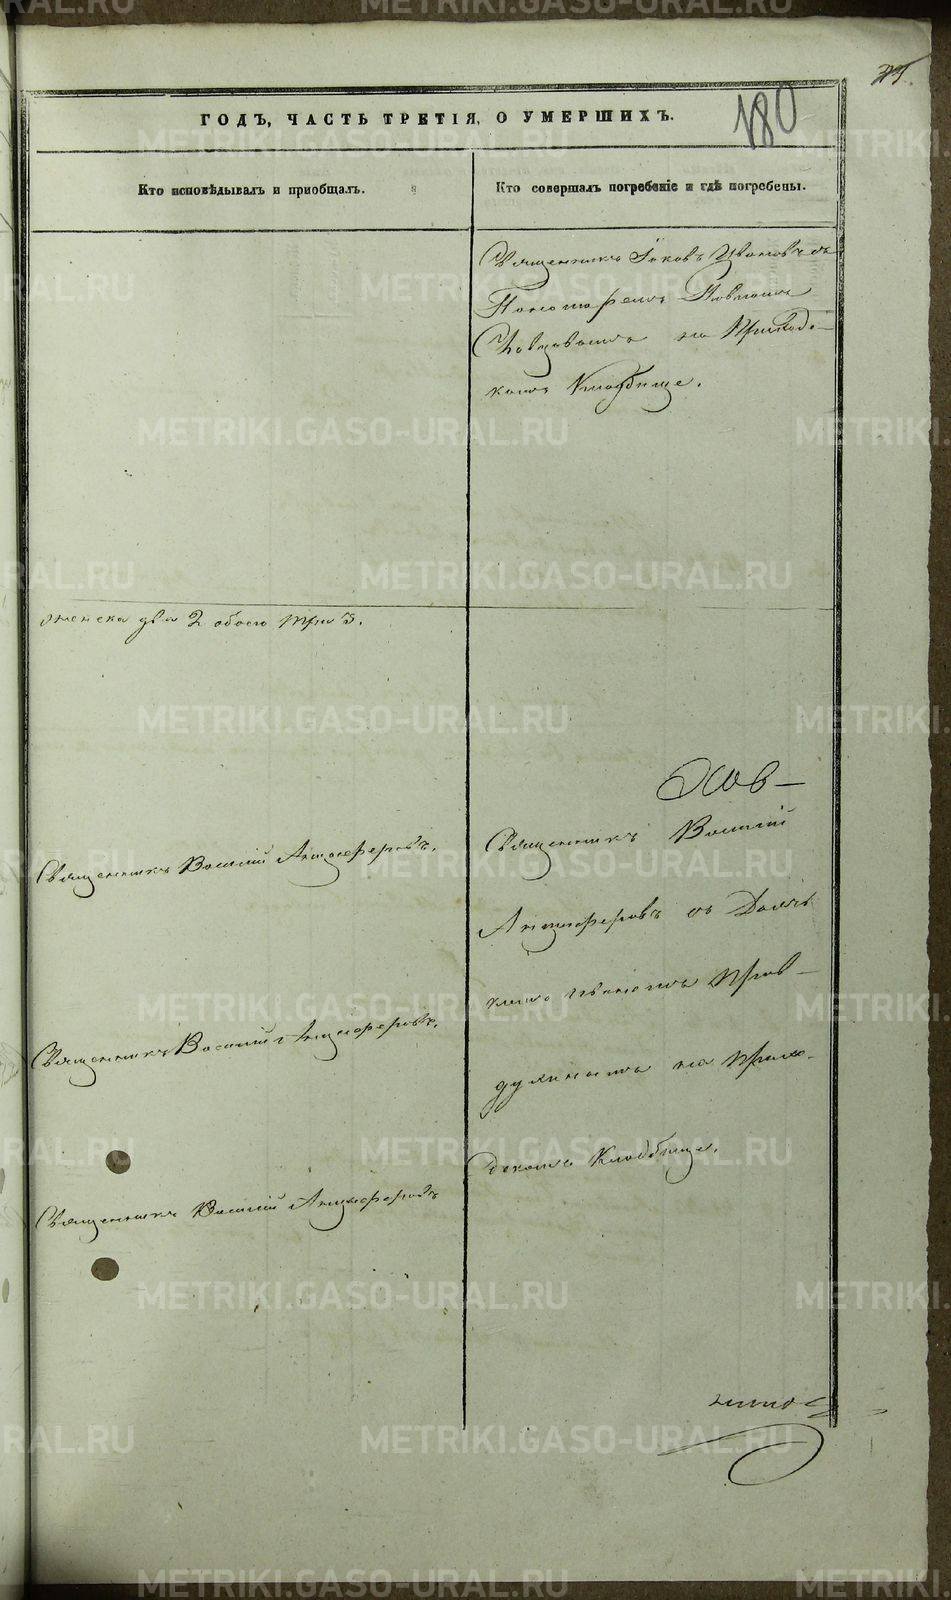 25.
180
ГОДЪ, ЧАСТЬ ТРЕТІЯ, О УМЕРШИХЪ.
Кто исповѣдывалъ и пріобщалъ.
Кто совершалъ погребеніе и гдѣ погребены.
Священникъ Іаковъ Ивановъ съ
Пономаремъ Павломъ
на Приходс-
комъ Кладбище.
женска два 2 обоего три 3.
Священникъ Василій Анциферовъ.
Священникъ Василій
Анциферовъ съ Дьяч
комъ Иваномъ
на Прихо-
дскомъ Кладбище.
Священникъ Василій Анциферовъ.
Священникъ Василій Анциферовъ
METRIKI.GASO-URAL.RU